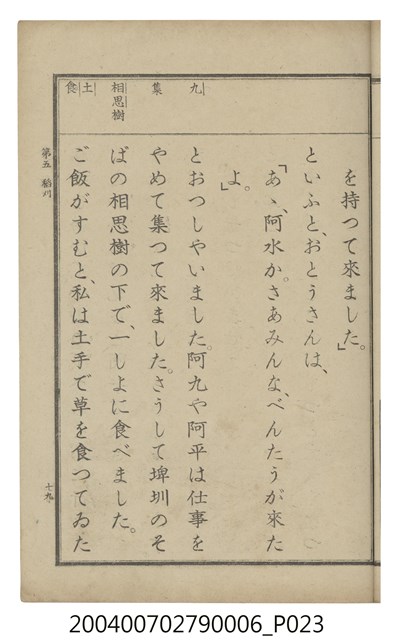 を持つて來ました。」
といふと、おとうさんは、
「あゝ、阿水か。さあみんな、べんたうが來た
よ。」
とおつしやいました。阿九や阿平は仕事を
やめて集つて來ました。さうして埤圳のそ
ばの相思樹の下で、一しよに食べました。
ご飯がすむと、私は土手で草を食つてゐた
九
集
相思樹
土
食
第五 稻刈
十九
200400702790006_P023